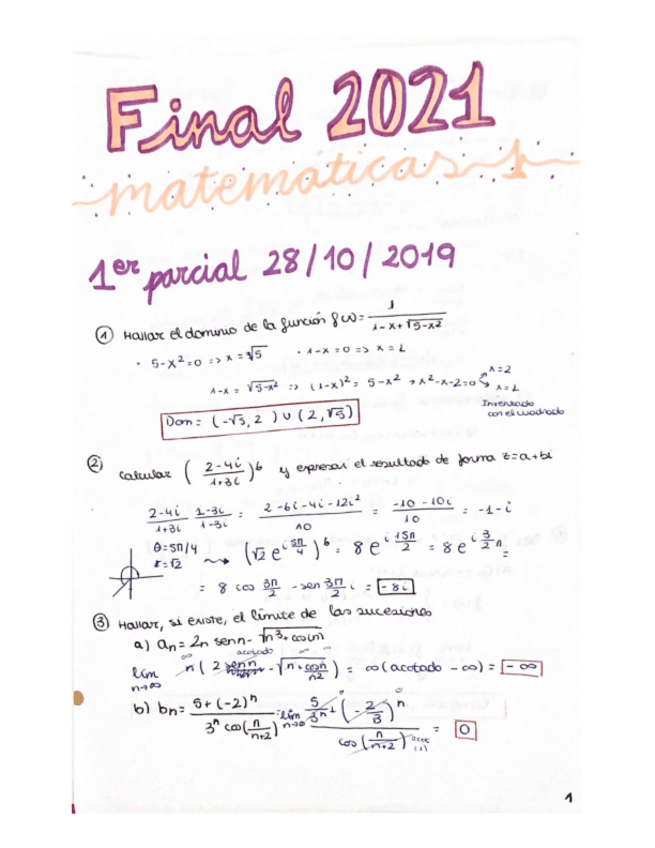 Final 2021
matemáticas
1er parcial 28/10/2019
① Hallar el dominio de la función f(x) = 1 / (1-x+√5-x²)
· 5-x²=0 => x = ±√5 · 1-x=0 => x=1
1-x = √5-x² => (1-x)² = 5-x² → x²-x-2=0 x=2 x=1
Inventado con el cuadrado
Dom = (-√5, 2) ∪ (2, √5)
② calcular ( (2-4i)/(1+3i) )⁶ y expresar el resultado de forma z=a+bi
(2-4i)/(1+3i) · (1-3i)/(1-3i) = (2-6i-4i-12i²)/10 = (-10-10i)/10 = -1-i
θ=5π/4
r=√2 ⇝ (√2 e^(i 5π/4))⁶ = 8 e^(i 15π/2) = 8 e^(i 3/2 π) =
= 8 cos 3π/2 - sen 3π/2 i = -8i
③ Hallar, si existe, el límite de las sucesiones
a) an = 2n senn - √n³+cos(n)
acotado
lím n→∞ n ( 2 senn - √(n + cosn/n²) ) = ∞(acotado - ∞) = -∞
b) bn = (5+(-2)ⁿ) / (3ⁿ cos(n/(n+2))) = lím n→∞ (5/3ⁿ + (-2/3)ⁿ) / cos(n/(n+2)) = 0
1